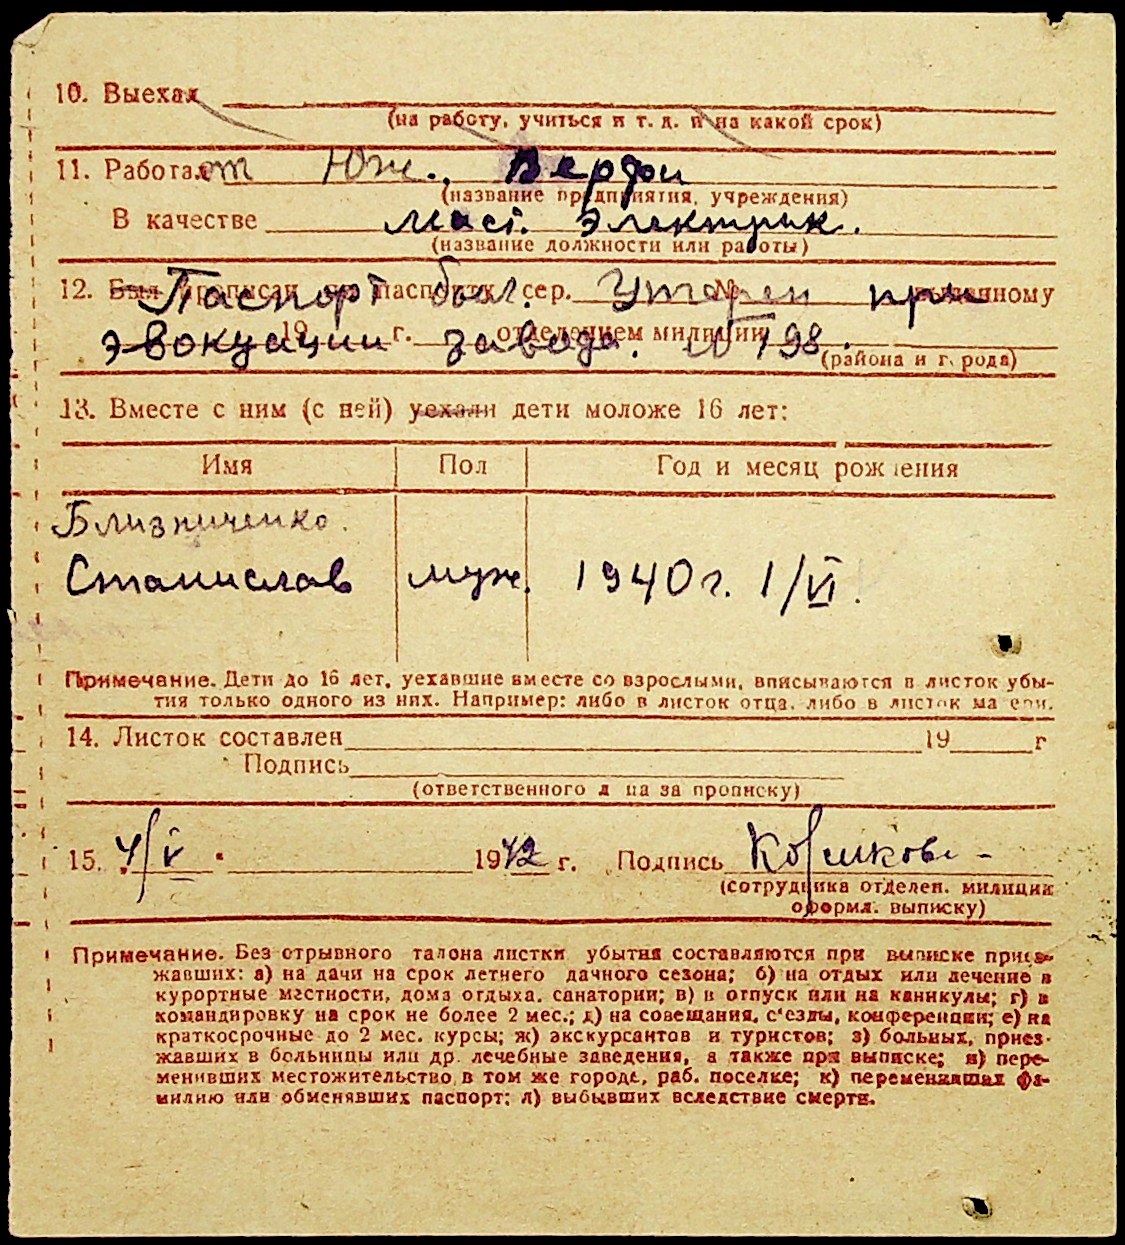 10. Выехал
(на работу, учиться и т. д. и на какой срок)
11. Работает Юж. Верфи
(название предприятия, учреждения)
В качестве маст. электрик.
(название должности или работы)
12. Был прописан по паспорту сер. № выданному
Паспорт был. Утерян при
19 г. отделением милиции
эвокуации завода. N 198.
(района и города)
13. Вместе с ним (с ней) уехали дети моложе 16 лет:
Имя Пол Год и месяц рождения
Близниченко.
Станислав муж. 1940 г. 1/VI.
Примечание. Дети до 16 лет, уехавшие вместе со взрослыми, вписываются в листок убы-
тия только одного из них. Например: либо в листок отца, либо в листок матери.
14. Листок составлен 19 г
Подпись
(ответственного лица за прописку)
15. 4/V 1942 г. Подпись
(сотрудника отделен. милиции
оформл. выписку)
Примечание. Без отрывного талона листки убытия составляются при выписке приез-
жавших: а) на дачи на срок летнего дачного сезона; б) на отдых или лечение в
курортные местности, дома отдыха, санатории; в) в отпуск или на каникулы; г) в
командировку на срок не более 2 мес.; д) на совещания, с'езды, конференции; е) на
краткосрочные до 2 мес. курсы; ж) экскурсантов и туристов; з) больных, приез-
жавших в больницы или др. лечебные заведения, а также при выписке; и) пере-
менивших местожительство в том же городе, раб. поселке; к) переменивших фа-
милию или обменявших паспорт; л) выбывших вследствие смерти.